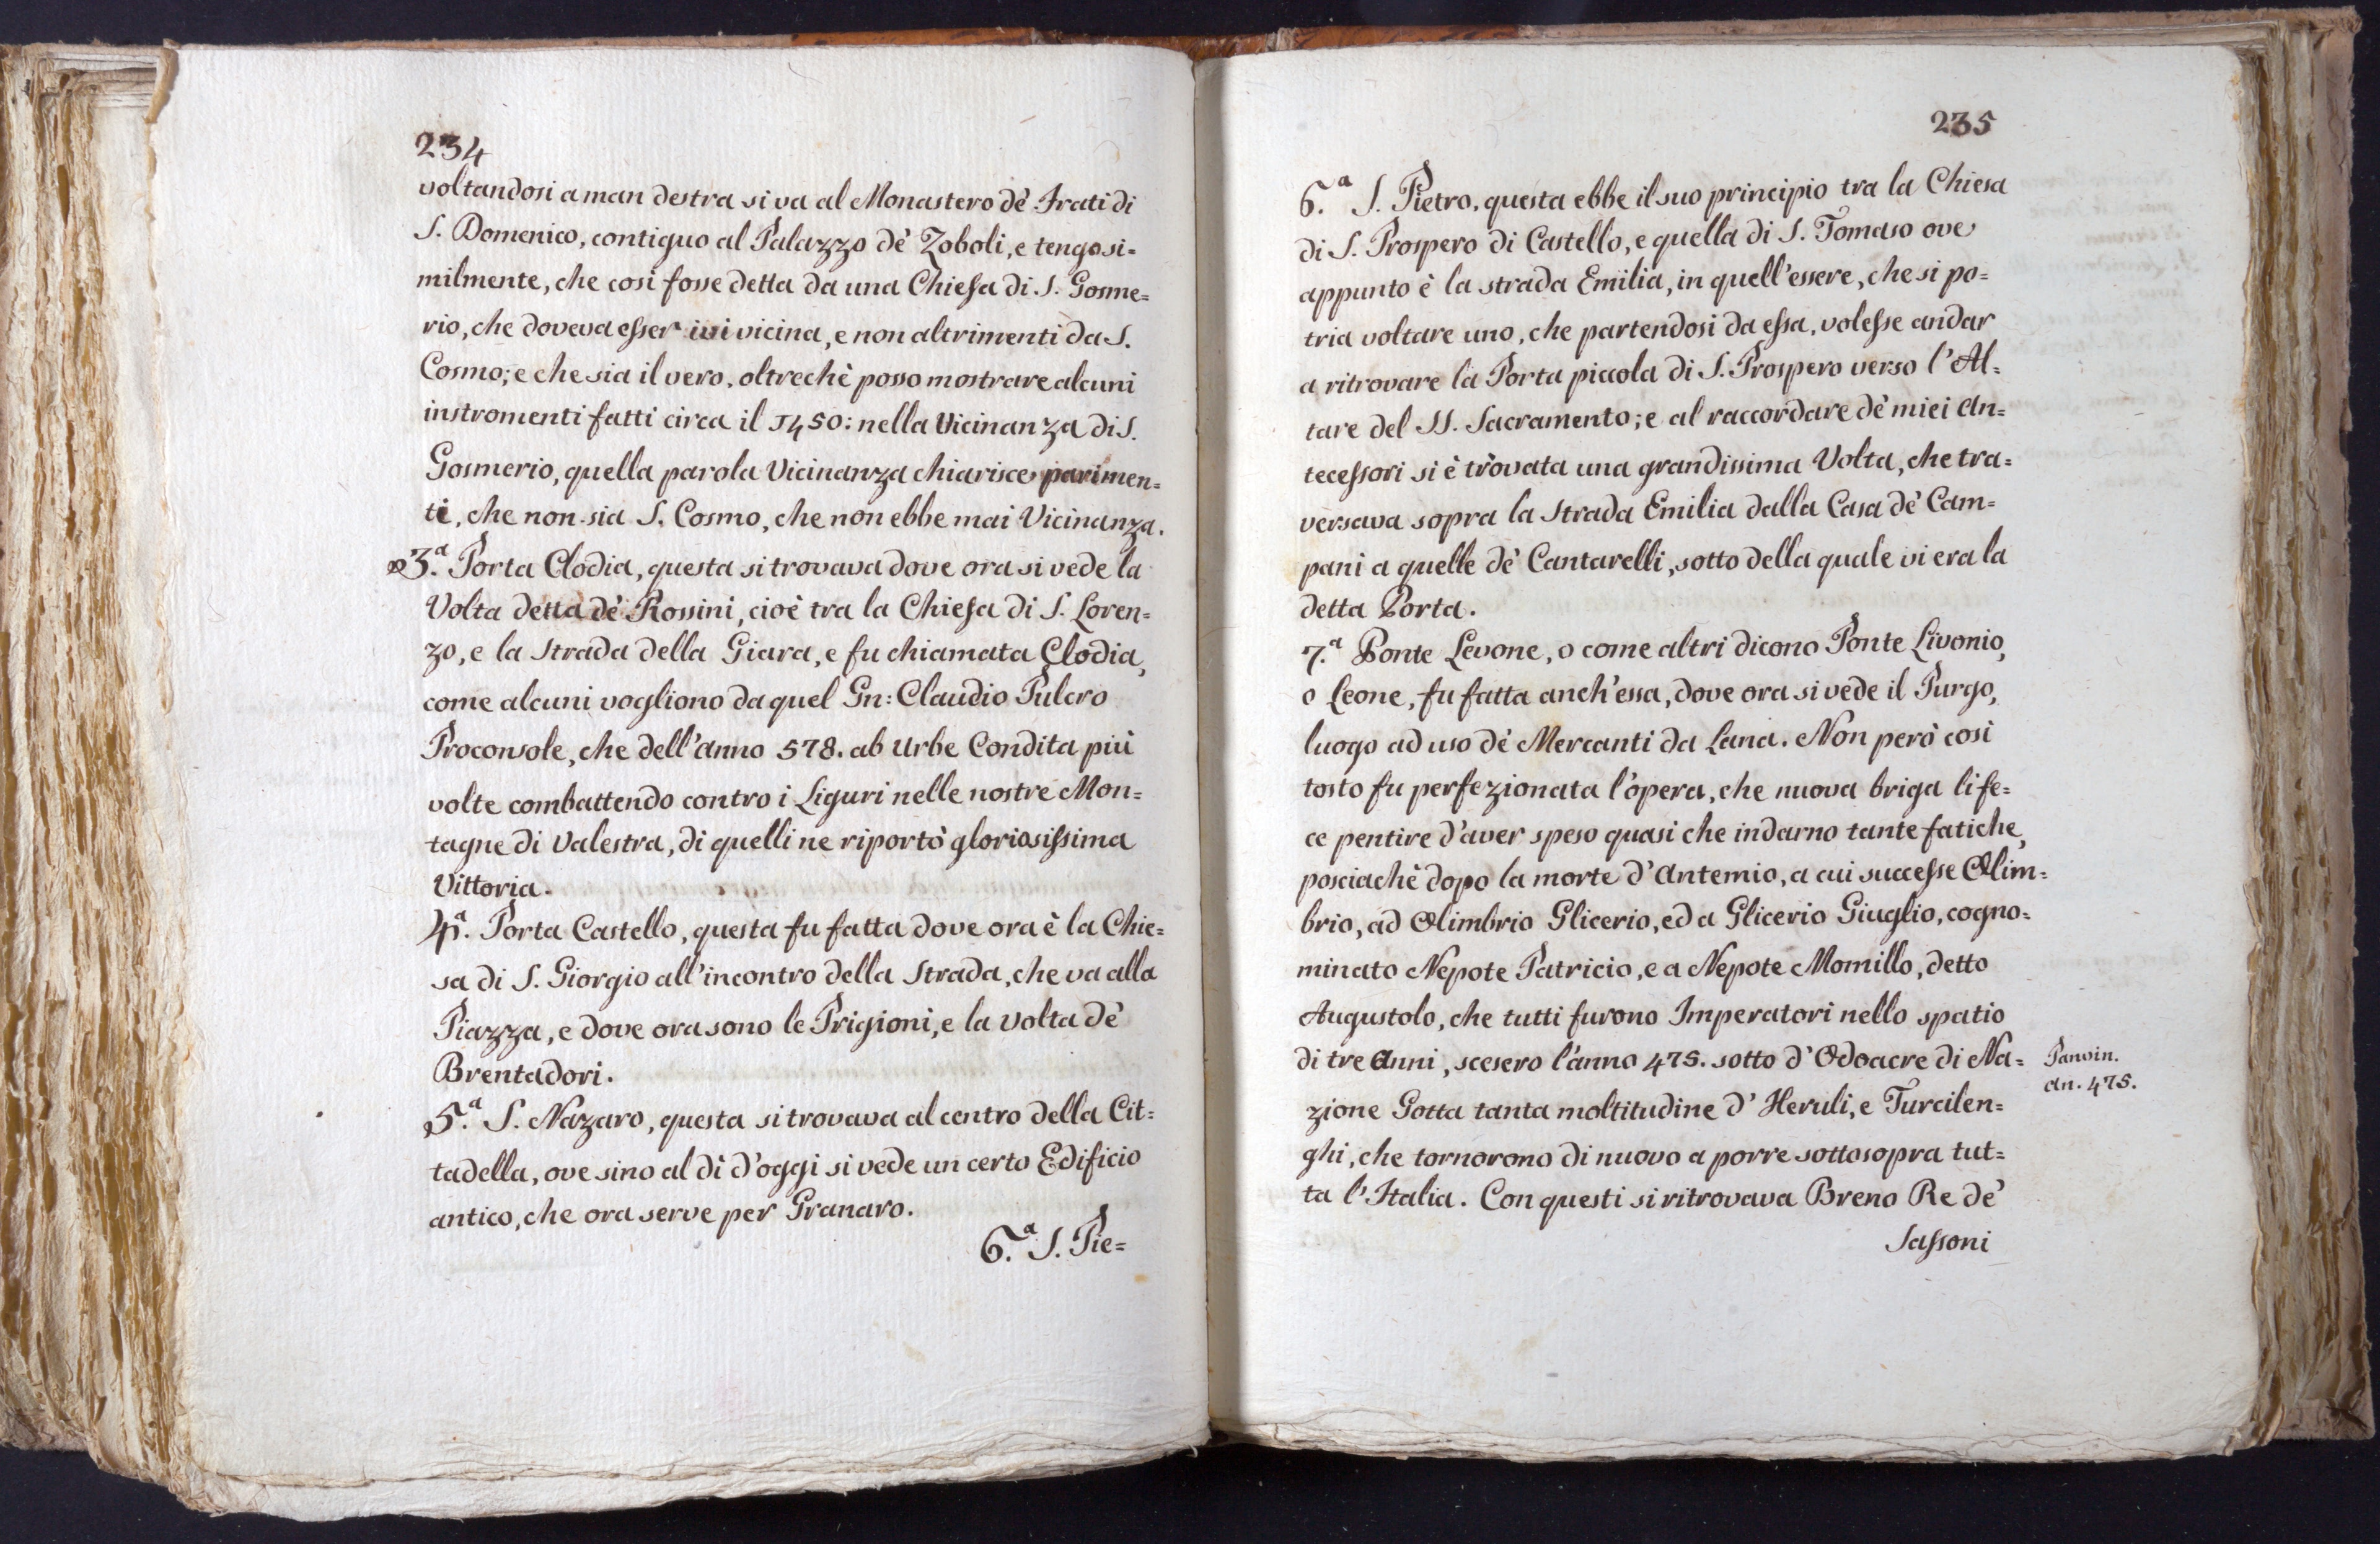 234
voltandosi a man destra si va al Monastero dè Frati di
S. Domenico, contiguo al Palazzo dè Zoboli, e tengo si=
milmente, che così fosse detta da una Chiesa di S. Gosme=
rio, che doveva esser ivi vicina, e non altrimenti da S.
Cosmo; e che sia il vero, oltrechè posso mostrare alcuni
instromenti fatti circa il 1450: nella Vicinanza di S.
Gosmerio, quella parola Vicinanza chiarisce parimen=
ti, che non sia S. Cosmo, che non ebbe mai Vicinanza.
3.ª Porta Clodia, questa si trovava dove ora si vede la
Volta detta dè Rossini, cioè tra la Chiesa di S. Loren=
zo, e la Strada della Giara, e fu chiamata Clodia,
come alcuni vogliono da quel Gn: Claudio Pulcro
Proconsole, che dell'anno 578. ab Urbe Condita più
volte combattendo contro i Liguri nelle nostre Mon=
tagne di Valestra, di quelli ne riportò gloriosissima
Vittoria.
4.ª Porta Castello, questa fu fatta dove ora è la Chie=
sa di S. Giorgio all'incontro della Strada, che va alla
Piazza, e dove ora sono le Prigioni, e la volta dè
Brentadori.
5.ª S. Nazaro, questa si trovava al centro della Cit=
tadella, ove sino al dì d'oggi si vede un certo Edificio
antico, che ora serve per Granaro.
6.ª S. Pie=
235
6.ª S. Pietro, questa ebbe il suo principio tra la Chiesa
di S. Prospero di Castello, e quella di S. Tomaso ove
appunto è la strada Emilia, in quell'essere, che si po=
tria voltare uno, che partendosi da essa, volesse andar
a ritrovare la Porta piccola di S. Prospero verso l'Al=
tare del SS. Sacramento; e al raccordare dè miei An=
tecessori si è trovata una grandissima Volta, che tra=
versava sopra la Strada Emilia dalla Casa dè Cam=
pani a quelle dè Cantarelli, sotto della quale vi era la
detta Porta.
7.ª Ponte Levone, o come altri dicono Ponte Livonio,
o Leone, fu fatta anch'essa, dove ora si vede il Purgo,
luogo ad uso dè Mercanti da Lana. Non però così
tosto fu perfezionata l'opera, che nuova briga li fe=
ce pentire d'aver speso quasi che indarno tante fatiche,
posciachè dopo la morte d'Antemio, a cui successe Olim=
brio, ad Olimbrio Glicerio, ed a Glicerio Giuglio, cogno=
minato Nepote Patricio, e a Nepote Momillo, detto
Augustolo, che tutti furono Imperatori nello spatio
di tre Anni, scesero l'anno 475. sotto d'Odoacre di Na=
zione Gotta tanta moltitudine d'Heruli, e Turcilen=
ghi, che tornorono di nuovo a porre sottosopra tut=
ta l'Italia. Con questi si ritrovava Breno Re dè
Sassoni
Panvin.
An. 475.